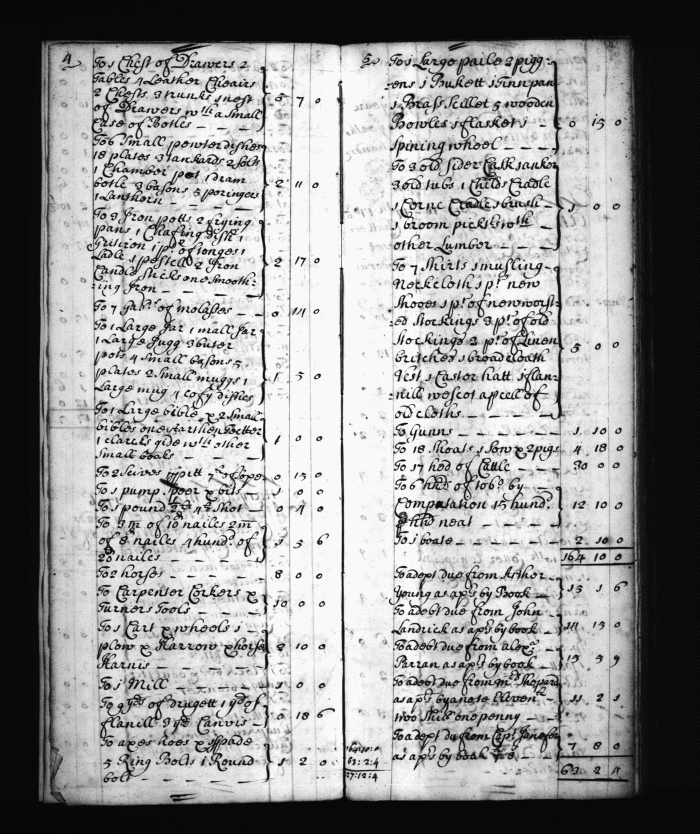 4
To 1 Chest of Drawers 2
Tables 4 Leather Cheairs
2 Chests 3 trunks 1 nest
of Drawers wth a Small
Case of Botles — — — 5 7 0
To 6 Small powter dishes
18 plates 3 tankards 2 Solts
1 Chamber pot 1 Dram
botle 3 basons 5 poringers
1 Lanthorn — — — 2 11 0
To 3 Iron potts 2 frying
pans 1 Chafing dish 1
Gridiron 1 pr of tonges 1
Ladle 1 pestell 2 Iron
Candle sticks one Smooth-
ing Iron — — — 2 17 0
To 7 of molasses — 0 14 0
To 1 Large Jar 1 mall Jar
1 Large Jugg 3 buter
pots 4 Small basons 5
plates 2 Small muggs 1
Large mug 4 cofy dishes 1 5 0
To 1 Large bible & 2 Small
bibles one Earthen
1 clarcks gide wth other
Small books — — — 1 0 0
To 2 Scives 0 15 0
To 1 pump & bits — 1 0 0
To 1 pound Shot — 0 4 0
To 3m of 10 nailes 2m
of 8d nailes 4 hund. of
20 nailes — — — 1 5 6
To 2 horses — — — 8 0 0
To Carpenter Corkers &
Turners Tools — — — 10 0 0
To 1 Cart & wheels 1
plow & Harrow & horse
Harnis — — — 2 10 0
To 1 Mill — — — 1 0 0
To 9 yds of drugett 1 yd of
flanill 3 yds Canvis — 0 18 6
To axes hoes & spade
5 Ring Bolts 1 Round
bolt — — — 1 2 0
5
To 1 Large paile 2 pigg-
ens 1 Bukett 1 Tinn pan
1 Brass Scillet 5 wooden
Bowles 1 flasket 1 —
Spining wheel — — — 0 15 0
To 3 old Sider Cask 1 ankor
3 old tubs 1 Childs Cradle
1 Corne Cradle 1 brush —
1 broom pickt wth
other Lumber — — — 1 0 0
To 7 Shirts 1 musling-
Neckcloth 1 pr new
Shooes 1 pr of new worst-
ed Stockings 3 pr of old
Stockings 2 pr of Linen
britches 1 broadcloath
Vest 1 Castor hatt 1 flan-
nill wescot a pcell of
old cloths — — — 5 0 0
To Gunns — — — 1 10 0
To 18 Shoats 1 Sow & 2 pigs 4 18 0
To 17 hed of Cattle — — 30 00 0
To 6 of Tobo by —
Computation 15 hund.
neat — — — 12 10 0
To 1 boate — — — 2 10 0
164 10 0
To a dept due from Arthor
Young as aprs by Book — 15 1 6
To a debt due from John
Landrick as aprs by book — 14 15 0
To a debt due from alexr
Parran as aprs by book — 15 5 9
To a debt due from Mr Shepard
as aprs by a note Eleven £
two Shils one penny — 11 2 1
To a dept du from Capt
as aprs by book — 7 8 0
63 2 4
164:10:0
63:2:4
27:12:4